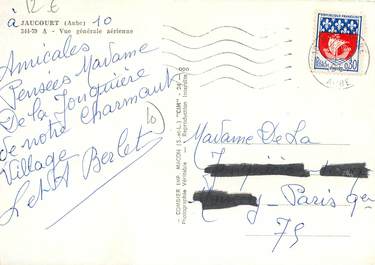 12 €
à
10
JAUCOURT (Aube)
344-79 A - Vue générale aérienne
Amicales
Pensées Madame
De la Jonquière
de notre Charmant
Village
Let A Berlet
10
COMBIER IMP. MACON (S.-et-L.) "CIM"
Photographie Véritable - Reproduction Interdite
REPUBLIQUE FRANÇAISE
0,30
AUBE
Madame De La
Paris 9e
75